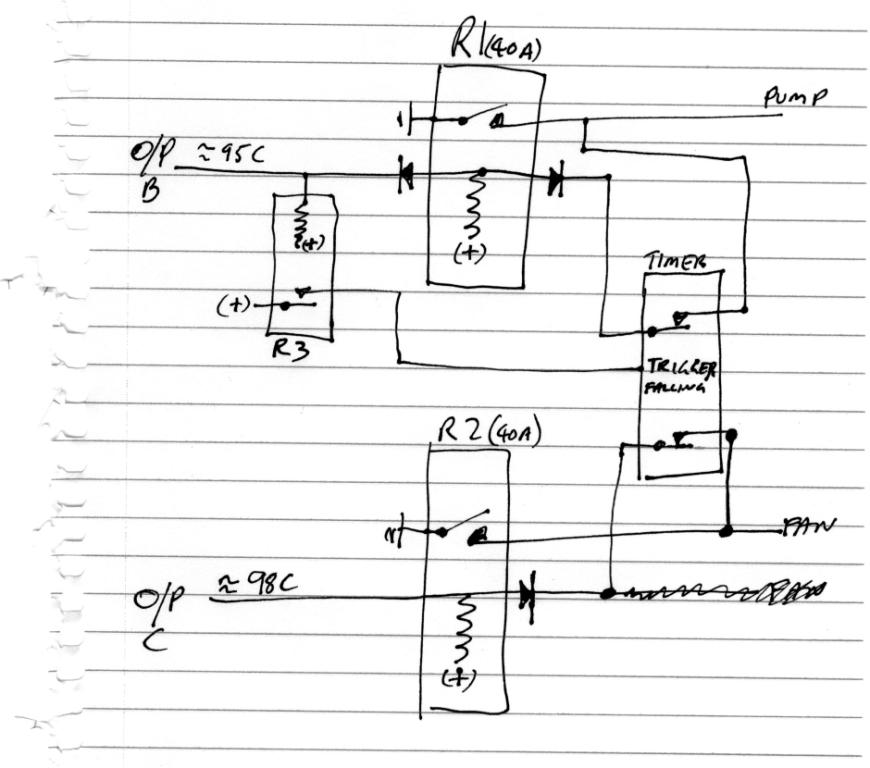 R1(40A)
PUMP
O/P ≈95C
B
(+)
(+)
TIMER
(+)
R3
TRIGGER
FALLING
R2(40A)
FAN
O/P ≈98C
C
(+)